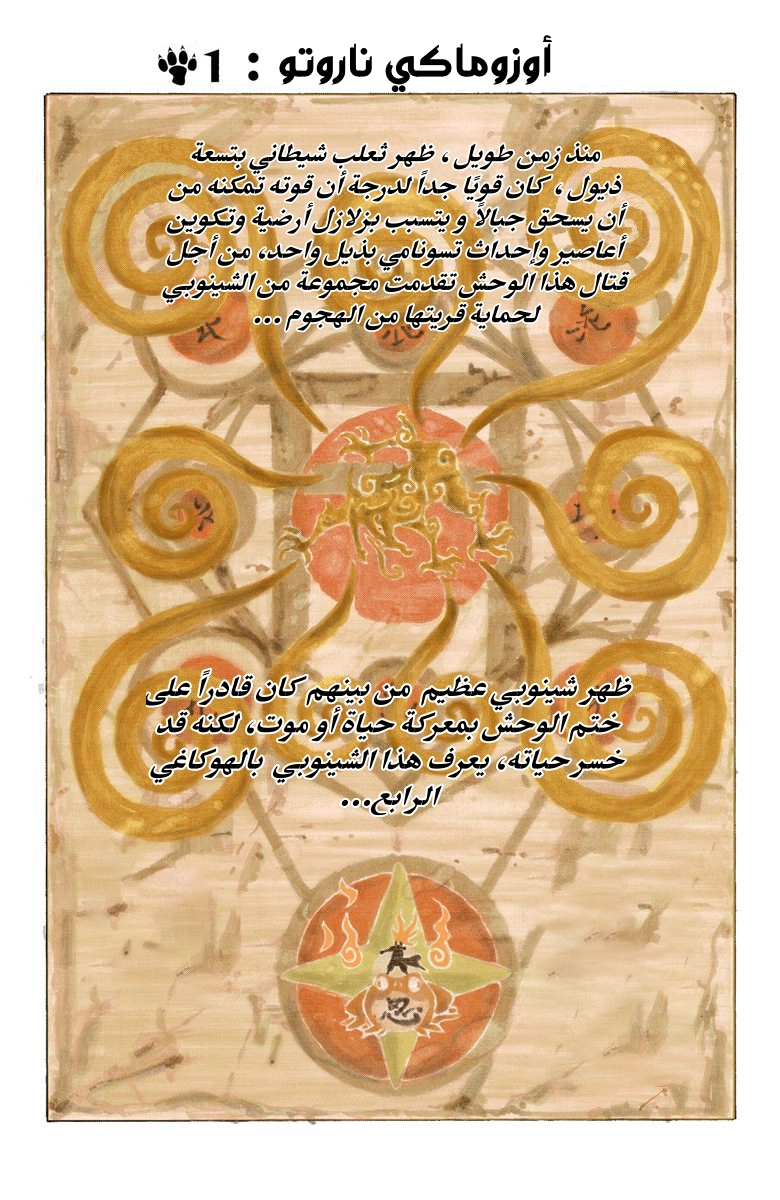 أوزوماكي ناروتو : 1
منذ زمن طويل ، ظهر ثعلب شيطاني بتسعة
ذيول ، كان قويًا جداً لدرجة أن قوته تمكنه من
أن يسحق جبالاً و يتسبب بزلازل أرضية وتكوين
أعاصير وإحداث تسونامي بذيل واحد، من أجل
قتال هذا الوحش تقدمت مجموعة من الشينوبي
لحماية قريتها من الهجوم ...
ظهر شينوبي عظيم من بينهم كان قادراً على
ختم الوحش بمعركة حياة أو موت، لكنه قد
خسر حياته، يعرف هذا الشينوبي بالهوكاغي
الرابع...
忍